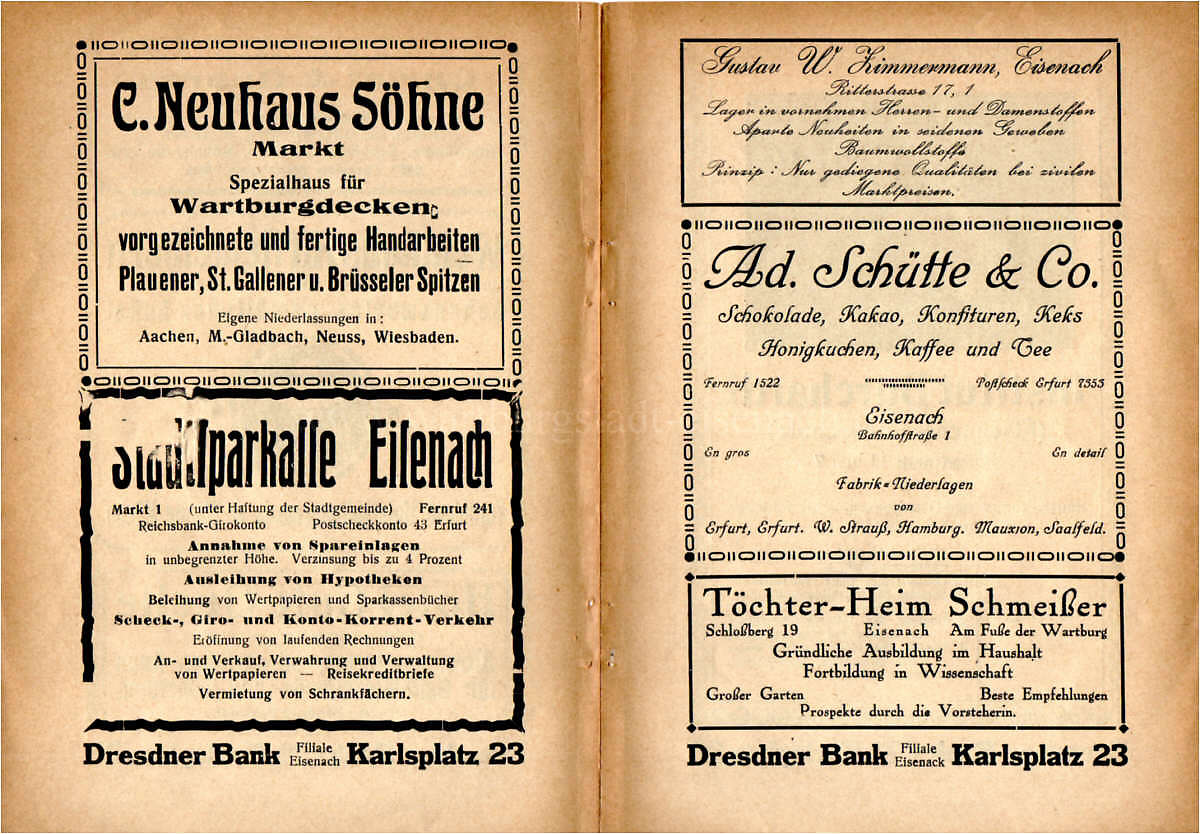 C. Neuhaus Söhne
Markt
Spezialhaus für
Wartburgdecken
vorgezeichnete und fertige Handarbeiten
Plauener, St. Gallener u. Brüsseler Spitzen
Eigene Niederlassungen in:
Aachen, M.-Gladbach, Neuss, Wiesbaden.
Stadtſparkaſſe Eiſenach
Markt 1 (unter Haftung der Stadtgemeinde) Fernruf 241
Reichsbank-Girokonto Postscheckkonto 43 Erfurt
Annahme von Spareinlagen
in unbegrenzter Höhe. Verzinsung bis zu 4 Prozent
Ausleihung von Hypotheken
Beleihung von Wertpapieren und Sparkassenbücher
Scheck-, Giro- und Konto-Korrent-Verkehr
Eröffnung von laufenden Rechnungen
An- und Verkauf, Verwahrung und Verwaltung
von Wertpapieren — Reisekreditbriefe
Vermietung von Schrankfächern.
Dresdner Bank Filiale Eisenach Karlsplatz 23
Gustav W. Zimmermann, Eisenach
Ritterstrasse 17, 1
Lager in vornehmen Herren- und Damenstoffen
Aparte Neuheiten in seidenen Geweben
Baumwollstoffe
Prinzip : Nur gediegene Qualitäten bei zivilen
Marktpreisen.
Ad. Schütte & Co.
Schokolade, Kakao, Konfituren, Keks
Honigkuchen, Kaffee und Tee
Fernruf 1522 Poſtſcheck Erfurt 7353
Eisenach
Bahnhofſtraße 1
En gros En detail
Fabrik=Niederlagen
von
Erfurt, Erfurt. W. Strauß, Hamburg. Mauxion, Saalfeld.
Töchter-Heim Schmeißer
Schloßberg 19 Eisenach Am Fuße der Wartburg
Gründliche Ausbildung im Haushalt
Fortbildung in Wissenschaft
Großer Garten Beste Empfehlungen
Prospekte durch die Vorsteherin.
Dresdner Bank Filiale Eisenack Karlsplatz 23